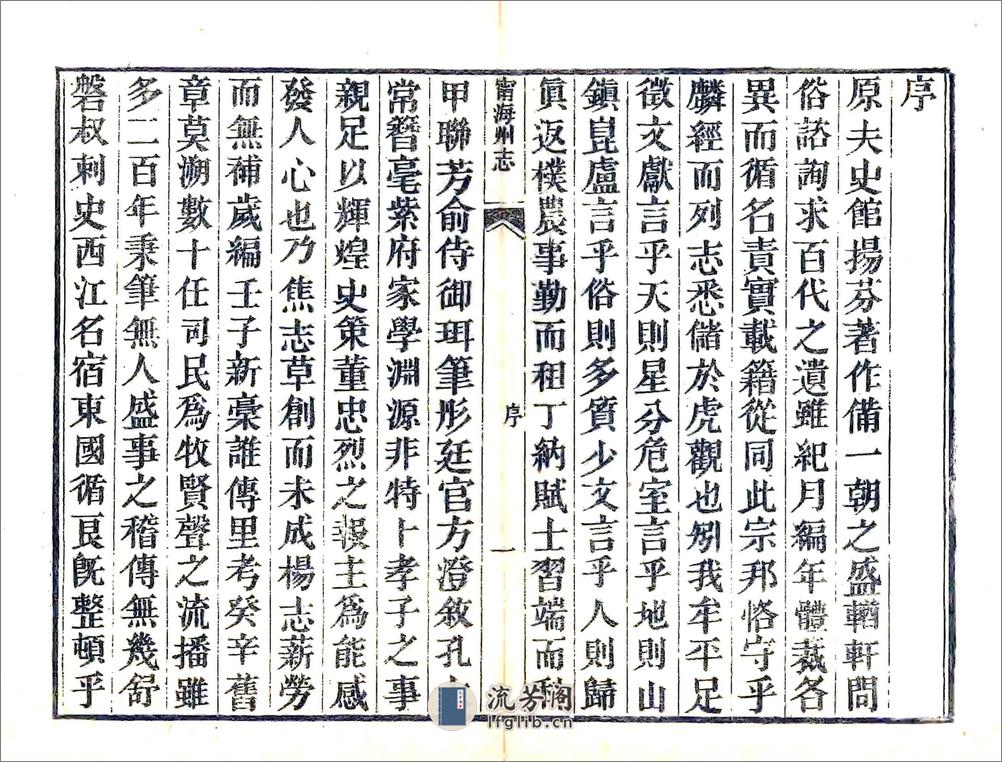 序
原夫史館揚芬著作備一朝之盛輶軒問
俗諮詢求百代之遺雖紀月編年體裁各
異而循名責實載籍從同此宗邦恪守乎
麟經而列志悉儲於虎觀也矧我牟平足
徵文獻言乎天則星分危室言乎地則山
鎮崑盧言乎俗則多質少文言乎人則歸
眞返樸農事勤而租丁納賦士習端而科
甯海州志 序 一
甲聯芳俞侍御珥筆彤廷官方澄敘孔
常簪毫紫府家學淵源非特卜孝子之事
親足以輝煌史策董忠烈之報主爲能感
發人心也乃焦志草創而未成楊志薪勞
而無補歲編壬子新稾誰傳里考癸辛舊
章莫溯數十任司民爲牧賢聲之流播雖
多二百年秉筆無人盛事之稽傳無幾舒
磐叔刺史西江名宿東國循良旣整頓乎
流芳閣
lfglib.cn